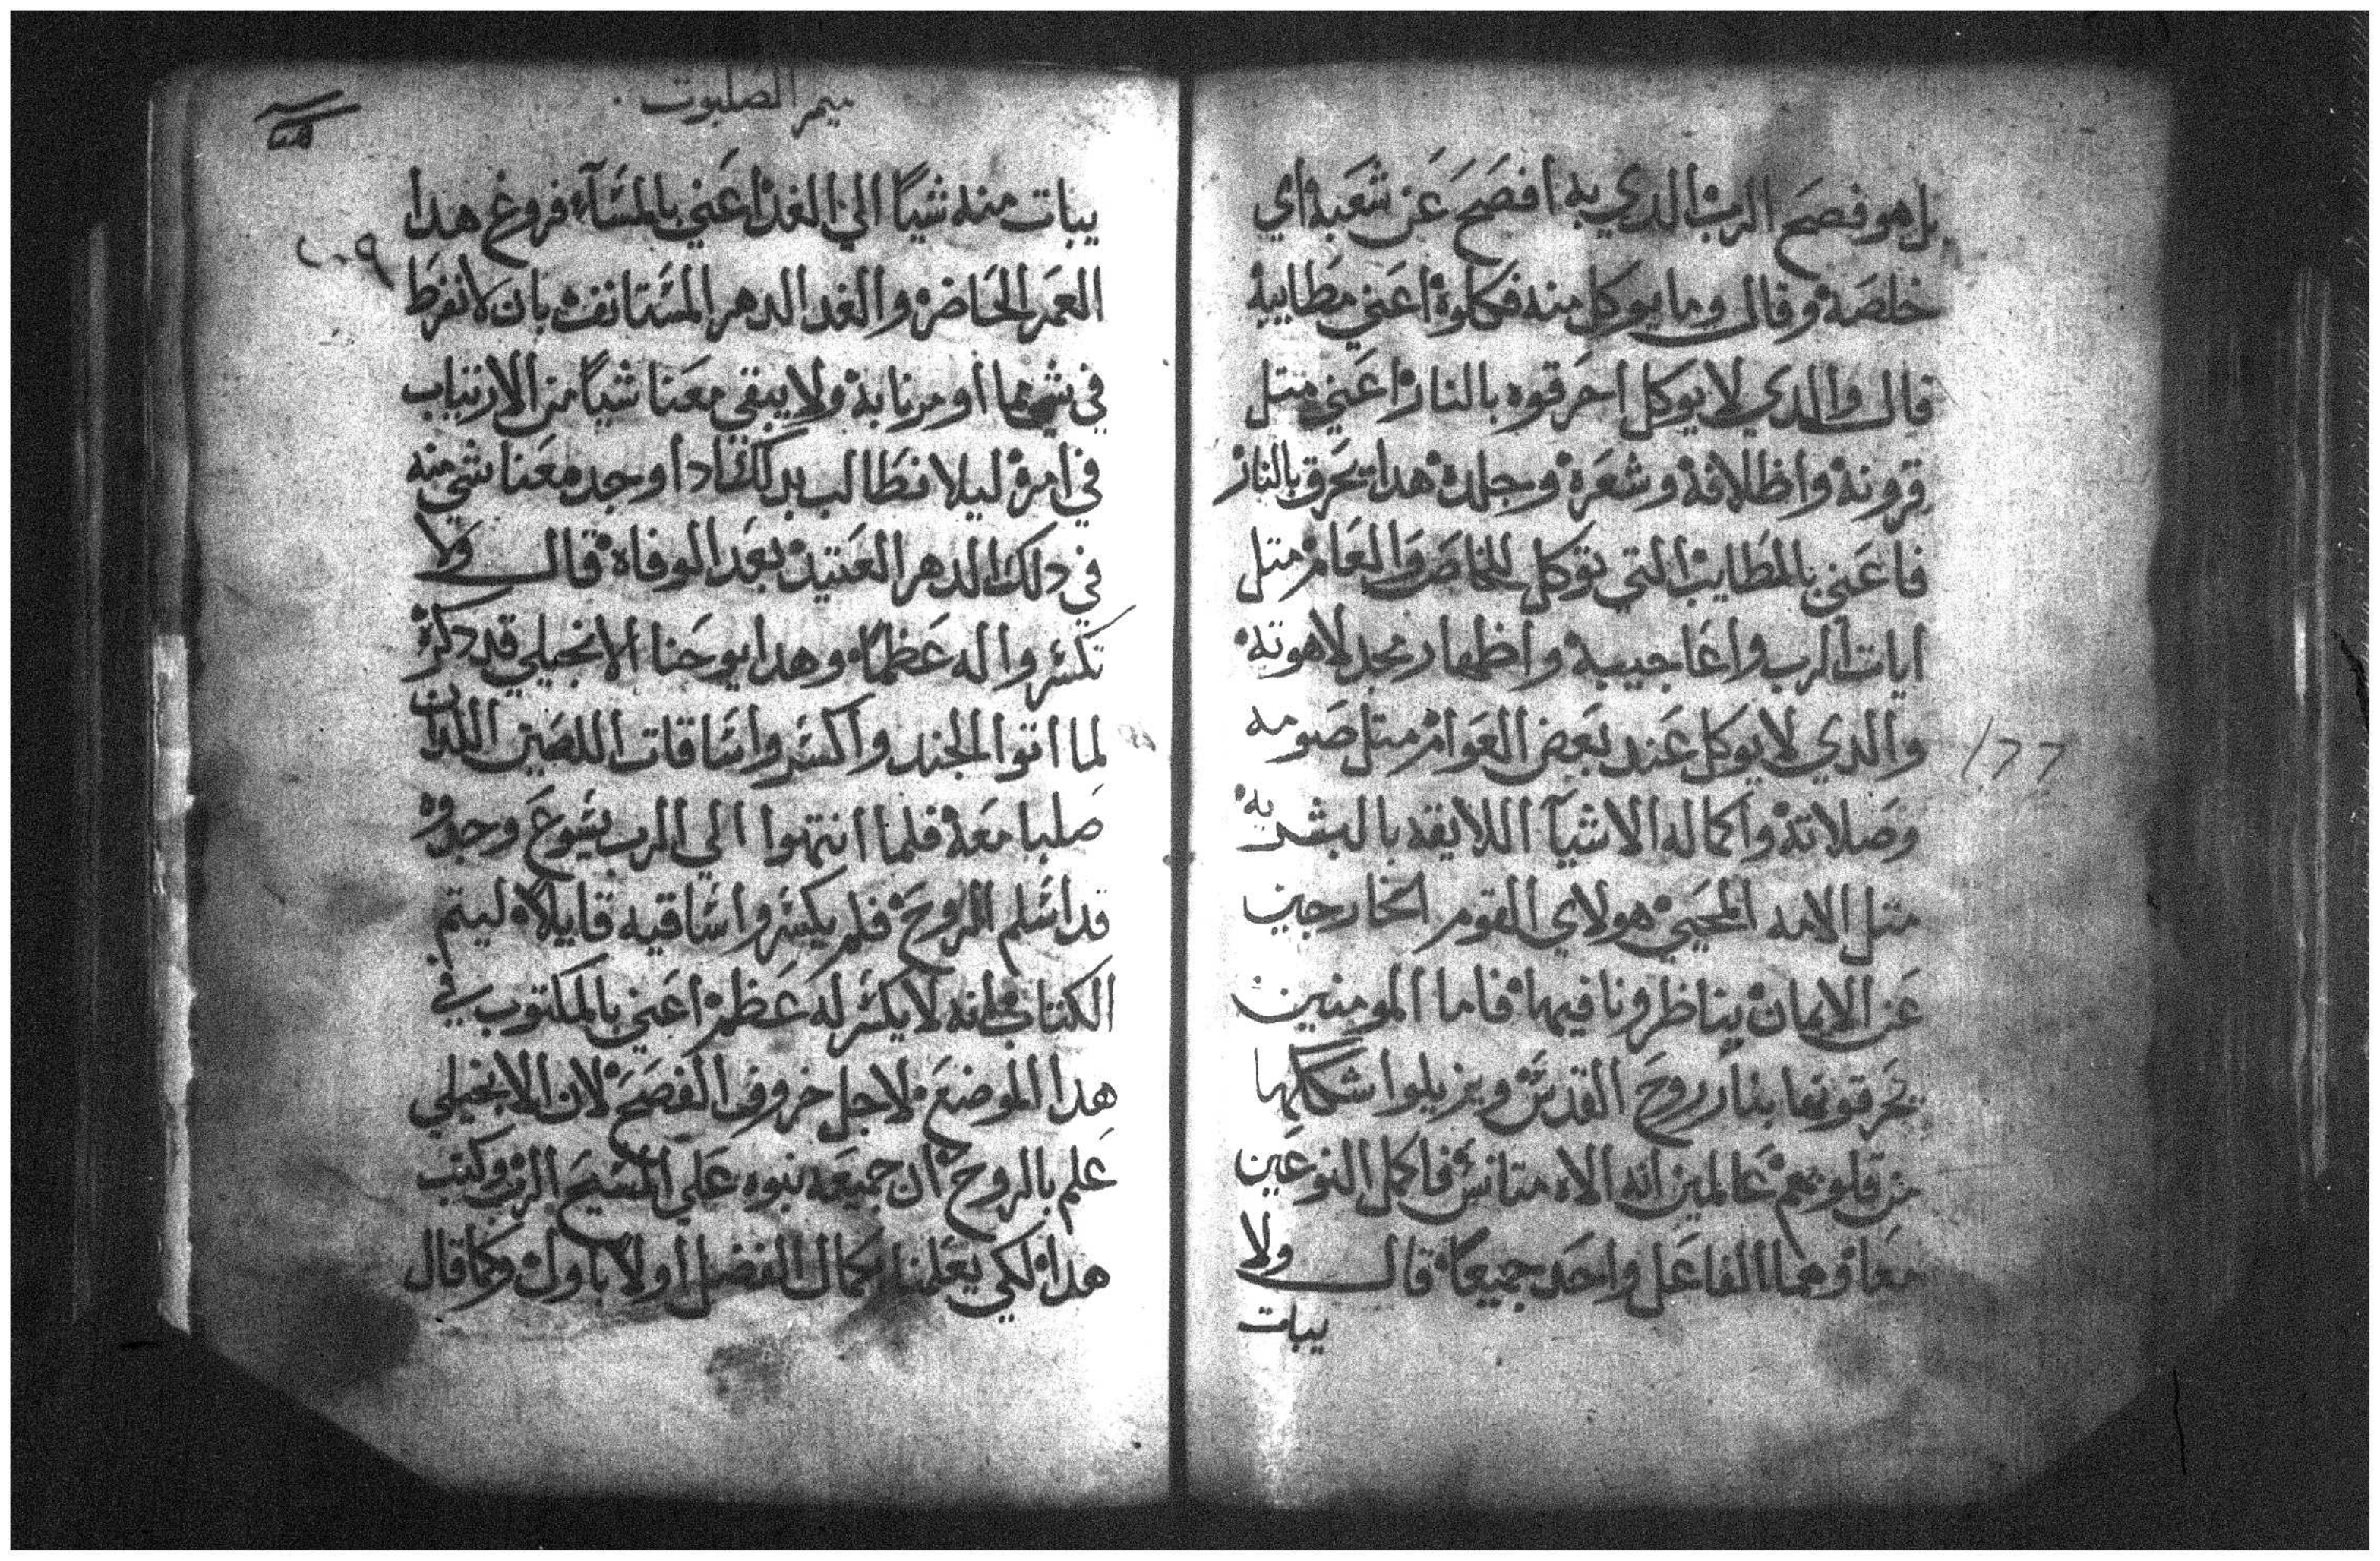 بل هو فصح الرب الدي به افصح عن شعبه اي
خلصه وقال وما يوكل منه فكلوه اعني مطاييبه
قال والدي لا يوكل احرقوه بالنار اعني متل
قرونه واظلافه وشعره وجلده هدا يحرق بالنار
فاعني بالمطايب التي توكل للخاص والعام متل
ايات الرب واعاجيبه واظهار مجد لاهوته
والدي لا يوكل عند بعض العوام متل صومه
وصلاته واكماله الاشيآ اللايقه بالبشريه
متل الامه المحيي هولاي القوم الخارجين
عن الايمان يناظرونا فيها فاما المومنين
يحرقونها بنار روح القدس ويزيلوا شكلها
من قلوبهم عالمين انه الاه متانس فاكمل النوعين
معا وهما الفاعل واحد جميعا قال ولا
يبات
177
ميمر الصلبوت
يبات منه شياً الي الغد اعني بالمسآء فروغ هدا
العمر الحاضر والغد الدهر المستانف بان لا نفرط
في او مرنا به ولا يبقي معنا شياً من الارتياب
في امره ليلا نطالب بدلك ادا وجد معنا شي منه
في دلك الدهر العتيد بعد الوفاة قال ولا
تكسروا له عظماً وهدا يوحنا الانجيلي قد دكره
لما اتوا الجند واكسروا ساقات اللصين اللدان
صلبا معه فلما انتهوا الي الرب يسوع وجدوه
قد اسلم الروح فلم يكسروا ساقيه قايلاً ليتم
الكتاب انه لا يكسر له عظم اعني بالمكتوب في
هدا الموضع لاجل خروف الفصح لان الانجيلي
علم بالروح ان جميعه نبوه علي المسيح الرب وكتب
هدا لكي يعلمنا بكمال الفضل اولاً باول وكما قال